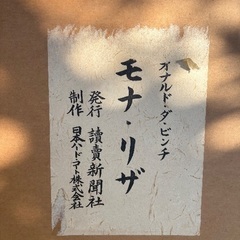 オナルド・ダ・ビンチ
モナ・リザ
発行 讀賣新聞社
制作 日本ハードコート株式会社